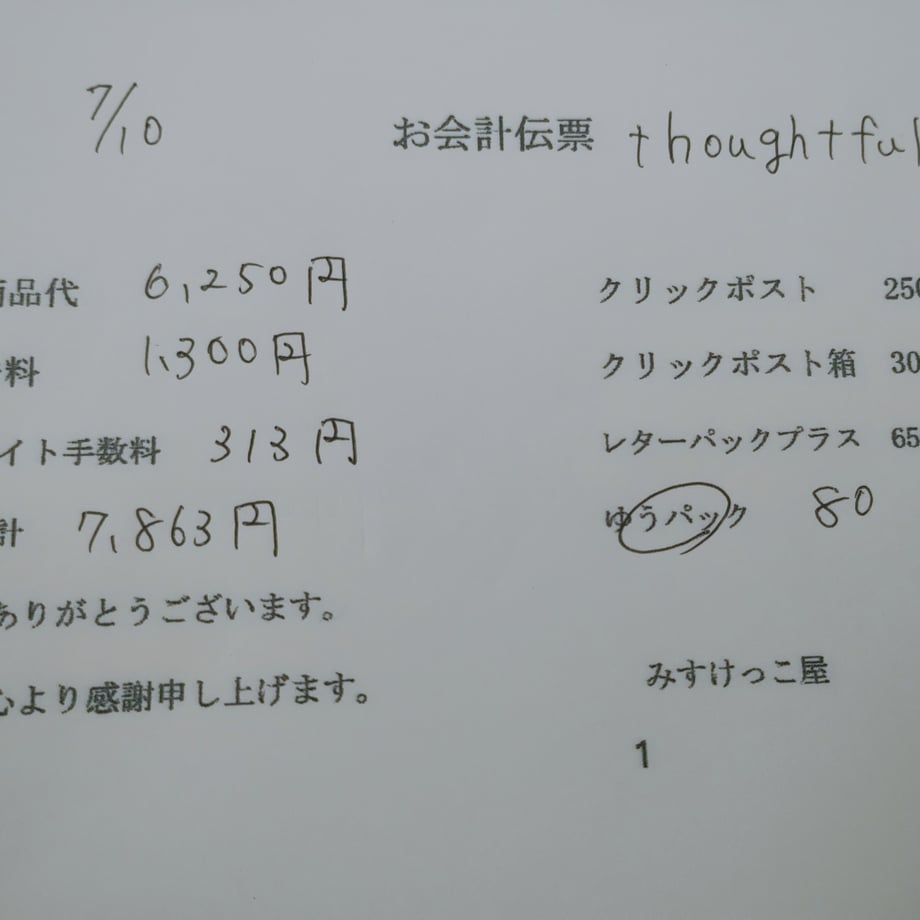 7/10
お会計伝票 thoughtful
商品代 6,250円
クリックポスト 250
料 1,300円
クリックポスト箱 30
イト手数料 313円
レターパックプラス 65
計 7,863円
ゆうパック 80
ありがとうございます。
心より感謝申し上げます。
みすけっこ屋
1